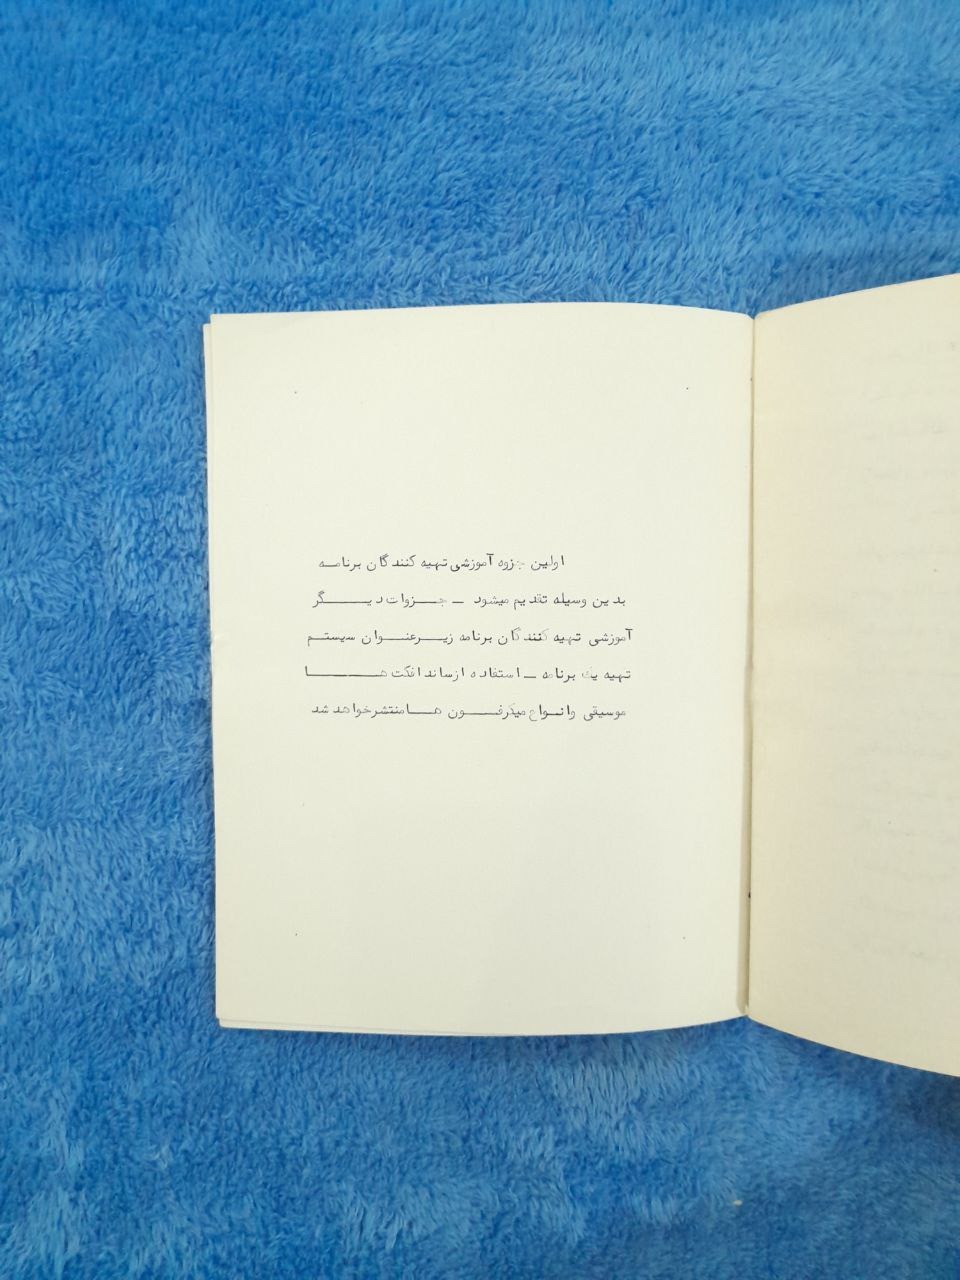 اولین جزوه آموزشی تهیه کنندگان برنامه
بدین وسیله تقدیم میشود ـ جزوات دیگر
آموزشی تهیه کنندگان برنامه زیرعنوان سیستم
تهیه یک برنامه ـ استفاده ازساند افکت ها
موسیقی وانواع میکرفون هامنتشرخواهد شد